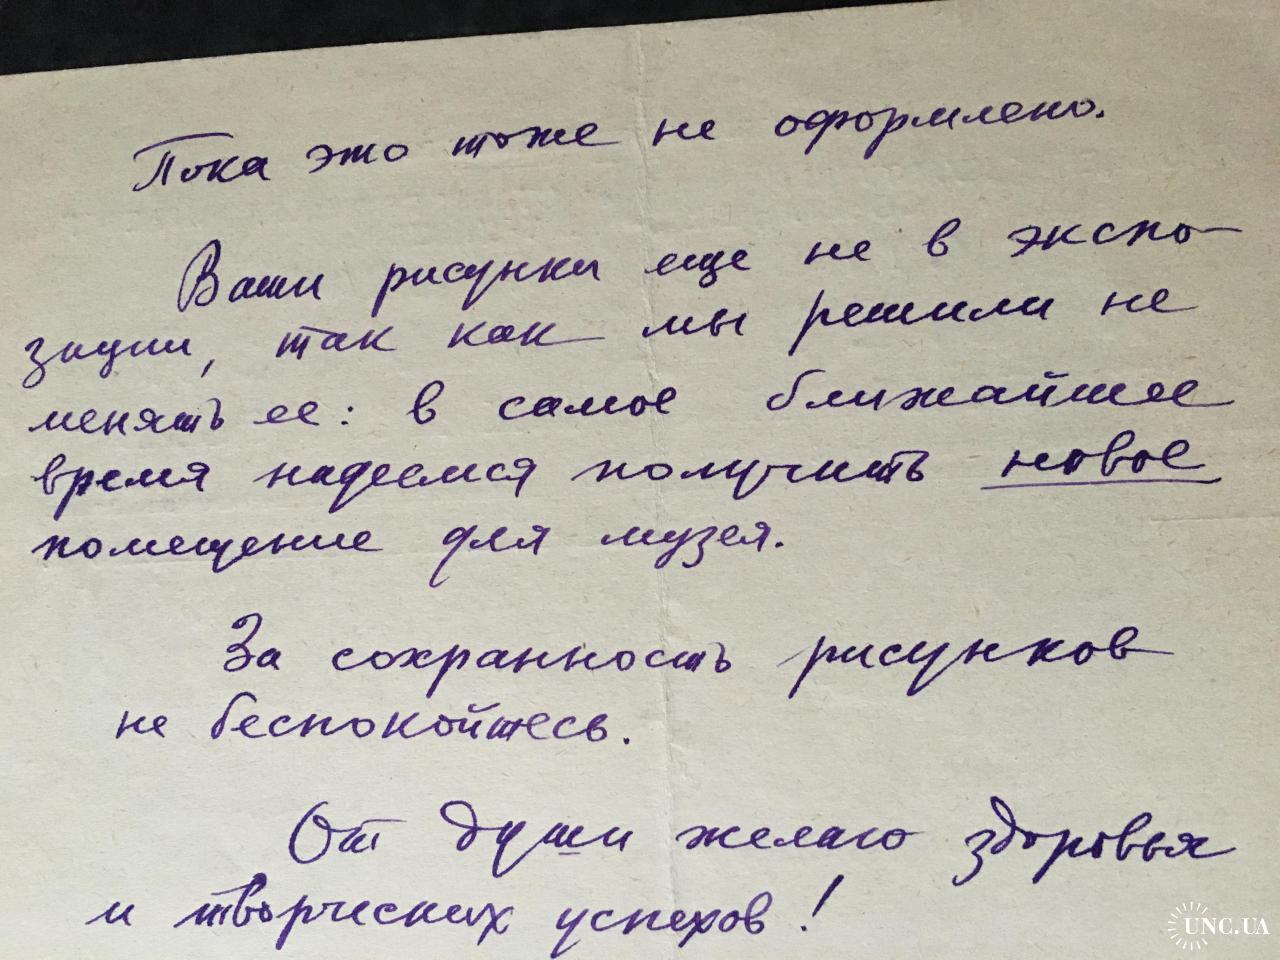 Пока это тоже не оформлено.
Ваши рисунки еще не в экспо-
зиции, так как мы решили не
менять ее: в самое ближайшее
время надеемся получить новое
помещение для музея.
За сохранность рисунков
не беспокойтесь.
От души желаю здоровья
и творческих успехов!
UNC.UA